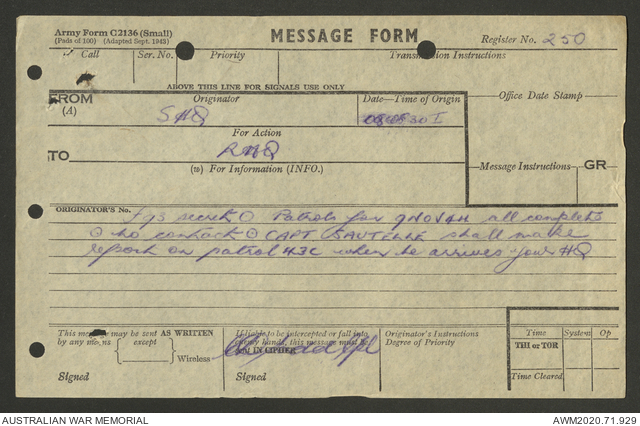 Army Form C2136 (Small)
(Pads of 100) (Adapted Sept. 1943)
MESSAGE FORM
Register No. 250
Call Ser. No. Priority Transmission Instructions
ABOVE THIS LINE FOR SIGNALS USE ONLY
FROM Originator Date—Time of Origin Office Date Stamp
(A) SHQ
For Action
TO RHQ
(W) For Information (INFO.) Message Instructions GR
ORIGINATOR'S No. secret Patrols for 9NOV44 all complete
no contact CAPT SAUTELLE shall make
report on patrol 43C when he arrives your HQ
This message may be sent AS WRITTEN
by any means except
Wireless
Signed
If liable to be intercepted or fall into
enemy hands, this message must be
sent IN CIPHER
Signed
Originator's Instructions
Degree of Priority
Time System Op
THI or TOR
Time Cleared
AUSTRALIAN WAR MEMORIAL AWM2020.71.929